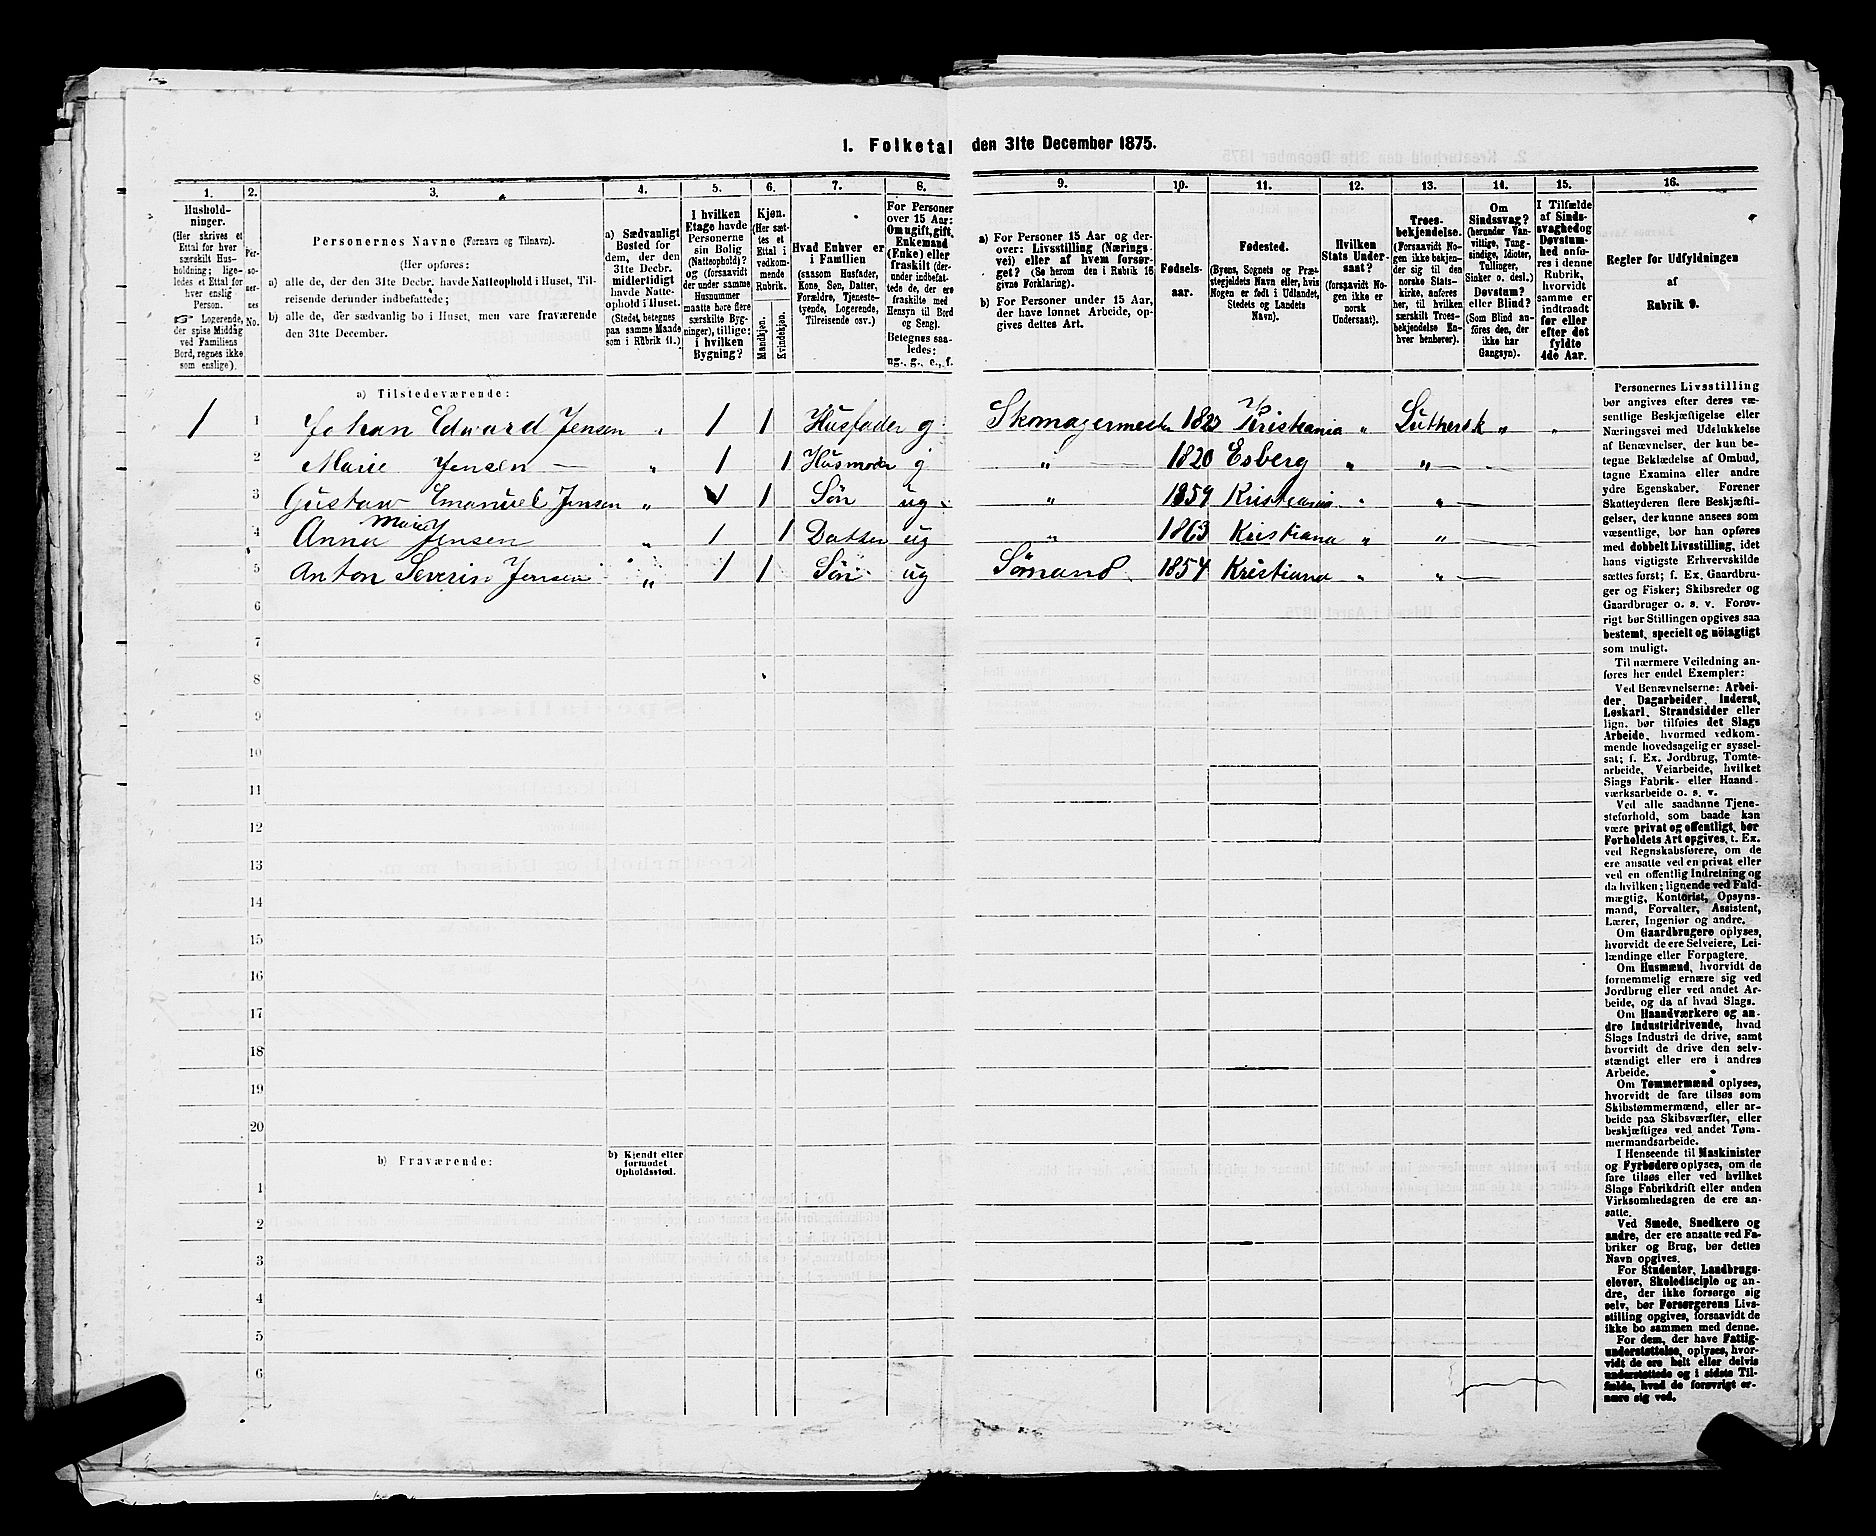 1. Folketal den 31te December 1875.
1. 2. 3. 4. 5. 6. 7. 8. 9. 10. 11. 12. 13. 14. 15. 16.
Hushold-
ninger.
(Her skrives et
Ettal for hver
særskilt Hus-
holdning; lige-
ledes et Ettal for
hver enslig
Person.
☞ Logerende,
der spise Middag
ved Familiens
Bord, regnes ikke
som enslige).
Per-
so-
ner-
nes
No.
Personernes Navne (Fornavn og Tilnavn).
(Her opføres:
a) alle de, der den 31te Decbr. havde Natteophold i Huset, Til-
reisende derunder indbefattede;
b) alle de, der sædvanlig bo i Huset, men vare fraværende
den 31te December.
a) Sædvanligt
Bosted for
dem, der den
31te Decbr.
midlertidigt
havde Natte-
ophold i Huset.
(Stedet, betegnes
paa samme Maade
som i Rubrik 11.)
I hvilken
Etage havde
Personerne
sin Bolig
(Natteophold)?
og (forsaavidt
der under samme
Husnummer
maatte høre flere
særskilte Byg-
ninger), tillige:
i hvilken
Bygning?
Kjøn.
(Her sæt-
tes et
Ettal i
vedkom-
mende
Rubrik.
Mandkjøn.
Kvindekjøn.
Hvad Enhver er
i Familien
(saasom Husfader,
Kone, Søn, Datter,
Forældre, Tjeneste-
tyende, Logerende,
Tilreisende osv.)
For Personer
over 15 Aar:
Om ugift, gift,
Enkemand
(Enke) eller
fraskilt (der-
under indbefat-
tede de, der ere
fraskilte med
Hensyn til Bord
og Seng).
Betegnes saa-
ledes:
ug., g., e., f.
a) For Personer 15 Aar og der-
over: Livsstilling (Nærings-
vei) eller af hvem forsør-
get? (Se herom den i Rubrik 16
givne Forklaring).
b) For Personer under 15 Aar,
der have lønnet Arbeide, op-
gives dettes Art.
Fødsels-
aar.
Fødested.
(Byens, Sognets og Præ-
stegjeldets Navn eller, hvis
Nogen er født i Udlandet,
Stedets og Landets
Navn).
Hvilken
Stats Under-
saat?
(forsaavidt No-
gen ikke er
norsk
Undersaat).
Troes-
bekjendelse.
(Forsaavidt No-
gen ikke bekjen-
der sig til den
norske Stats-
kirke, anføres
her, til hvilken
særskilt Troes-
bekjendelse En-
hver henhører).
Om
Sindssvag?
(herunder Van-
vittige, Tung-
sindige, Idioter,
Tullinger,
Sinker o. desl.)
Døvstum?
eller Blind?
(Som Blind an-
føres den, der
ikke har
Gangsyn).
I Tilfælde
af Sinds-
svaghed og
Døvstum-
hed anfø-
res i denne
Rubrik,
hvorvidt
samme er
indtraadt
før eller
efter det
fyldte
4de Aar.
Regler for Udfyldningen
af
Rubrik 9.
a) Tilstedeværende:
1 1 Johan Edward Jensen „ 1 1 Husfader g Skomagermester 1827 Kristiania „ Luthersk „ „
2 Marie Jensen — „ 1 1 Husmoder g „ 1820 Esberg „ „
3 Gustaw Emanuel Jensen „ 1 1 Søn ug „ 1859 Kristiania „ „
4 Anna Marie Jensen „ 1 1 Datter ug „ 1863 Kristiana „ „
5 Anton Severin Jensen „ 1 1 Søn ug Sømand 1854 Kristiana „ „
6
7
8
9
10
11
12
13
14
15
16
17
18
19
20
b) Fraværende:
b) Kjendt eller
formodet
Opholdssted.
1
2
3
4
5
6
Personernes Livsstilling
bør angives efter deres væ-
sentlige Beskjæftigelse eller
Næringsvei med Udelukkelse
af Benævnelser, der kun be-
tegne Beklædelse af Ombud,
tagne Examina eller andre
ydre Egenskaber. Forener
Skatteyderen flere Beskjæfti-
gelser, der kunne ansees som
væsentlige, bør han opføres
med dobbelt Livsstilling, idet
hans vigtigste Erhvervskilde
sættes først; f. Ex. Gaardbru-
ger og Fisker; Skibsreder og
Gaardbruger o. s. v. Forøv-
rigt bør Stillingen opgives saa
bestemt, specielt og nöiagtigt
som muligt.
Til nærmere Veiledning an-
føres her endel Exempler:
Ved Benævnelserne: Arbei-
der, Dagarbeider, Inderst,
Løskarl, Strandsidder eller
lign. bør tilføies det Slags
Arbeide, hvormed vedkom-
mende hovedsagelig er syssel-
sat; f. Ex. Jordbrug, Tomte-
arbeide, Veiarbeide, hvilket
Slags Fabrik- eller Haand-
værksarbeide o. s. v.
Ved alle saadanne Tjene-
steforhold, som baade kan
være privat og offentligt, bør
Forholdets Art opgives, t. Ex.
ved Regnskabsførere, om de
ere ansatte ved en privat eller
ved en offentlig Indretning og
da hvilken; lignende ved Fuld-
mægtig, Kontorist, Opsyns-
mand, Forvalter, Assistent,
Lærer, Ingeniør og andre.
Om Gaardbrugere oplyses,
hvorvidt de ere Selveiere, Lei-
lændinge eller Forpagtere.
Om Husmænd, hvorvidt de
fornemmelig ernære sig ved
Jordbrug eller ved andet Ar-
beide, og da af hvad Slags.
Om Haandværkere og an-
dre Industridrivende, hvad
Slags Industri de drive, samt
hvorvidt de drive den selv-
stændigt eller ere i andres
Arbeide.
Om Tømmermænd oplyses,
hvorvidt de fare tilsøs som
Skibstømmermænd, eller ar-
beide paa Skibsværfter, eller
beskjæftiges ved andet Tøm-
mermandsarbeide.
I Henseende til Maskinister
og Fyrbødere oplyses, om de
fare tilsøs eller ved hvilket
Slags Fabrikdrift eller anden
Virksomhedsgren de ere an-
satte.
Ved Smede, Snedkere og
andre, der ere ansatte ved Fa-
briker og Brug, bør dettes
Navn opgives.
For Studenter, Landbrugs-
elever, Skoledisciple og an-
dre, der ikke forsørge sig
selv, bør Forsørgerens Livs-
stilling opgives, forsaavidt de
ikke bo sammen med denne.
For dem, der have Fattig-
understøttelse, oplyses, hvor-
vidt de ere helt eller delvis
understøttede og i sidste Til-
fælde, hvad de forøvrigt er-
nære sig ved.